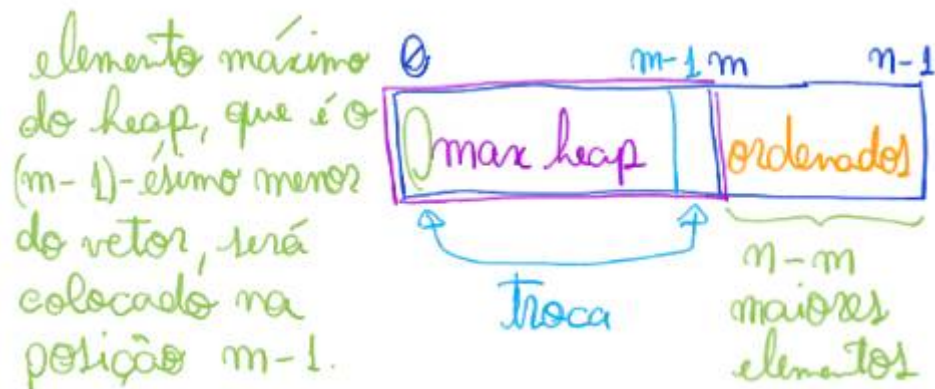 elemento máximo
do heap, que é o
(m-1)-ésimo menor
do vetor, será
colocado na
posição m-1.
0 m-1 m n-1
max heap ordenados
troca
n-m
maiores
elementos